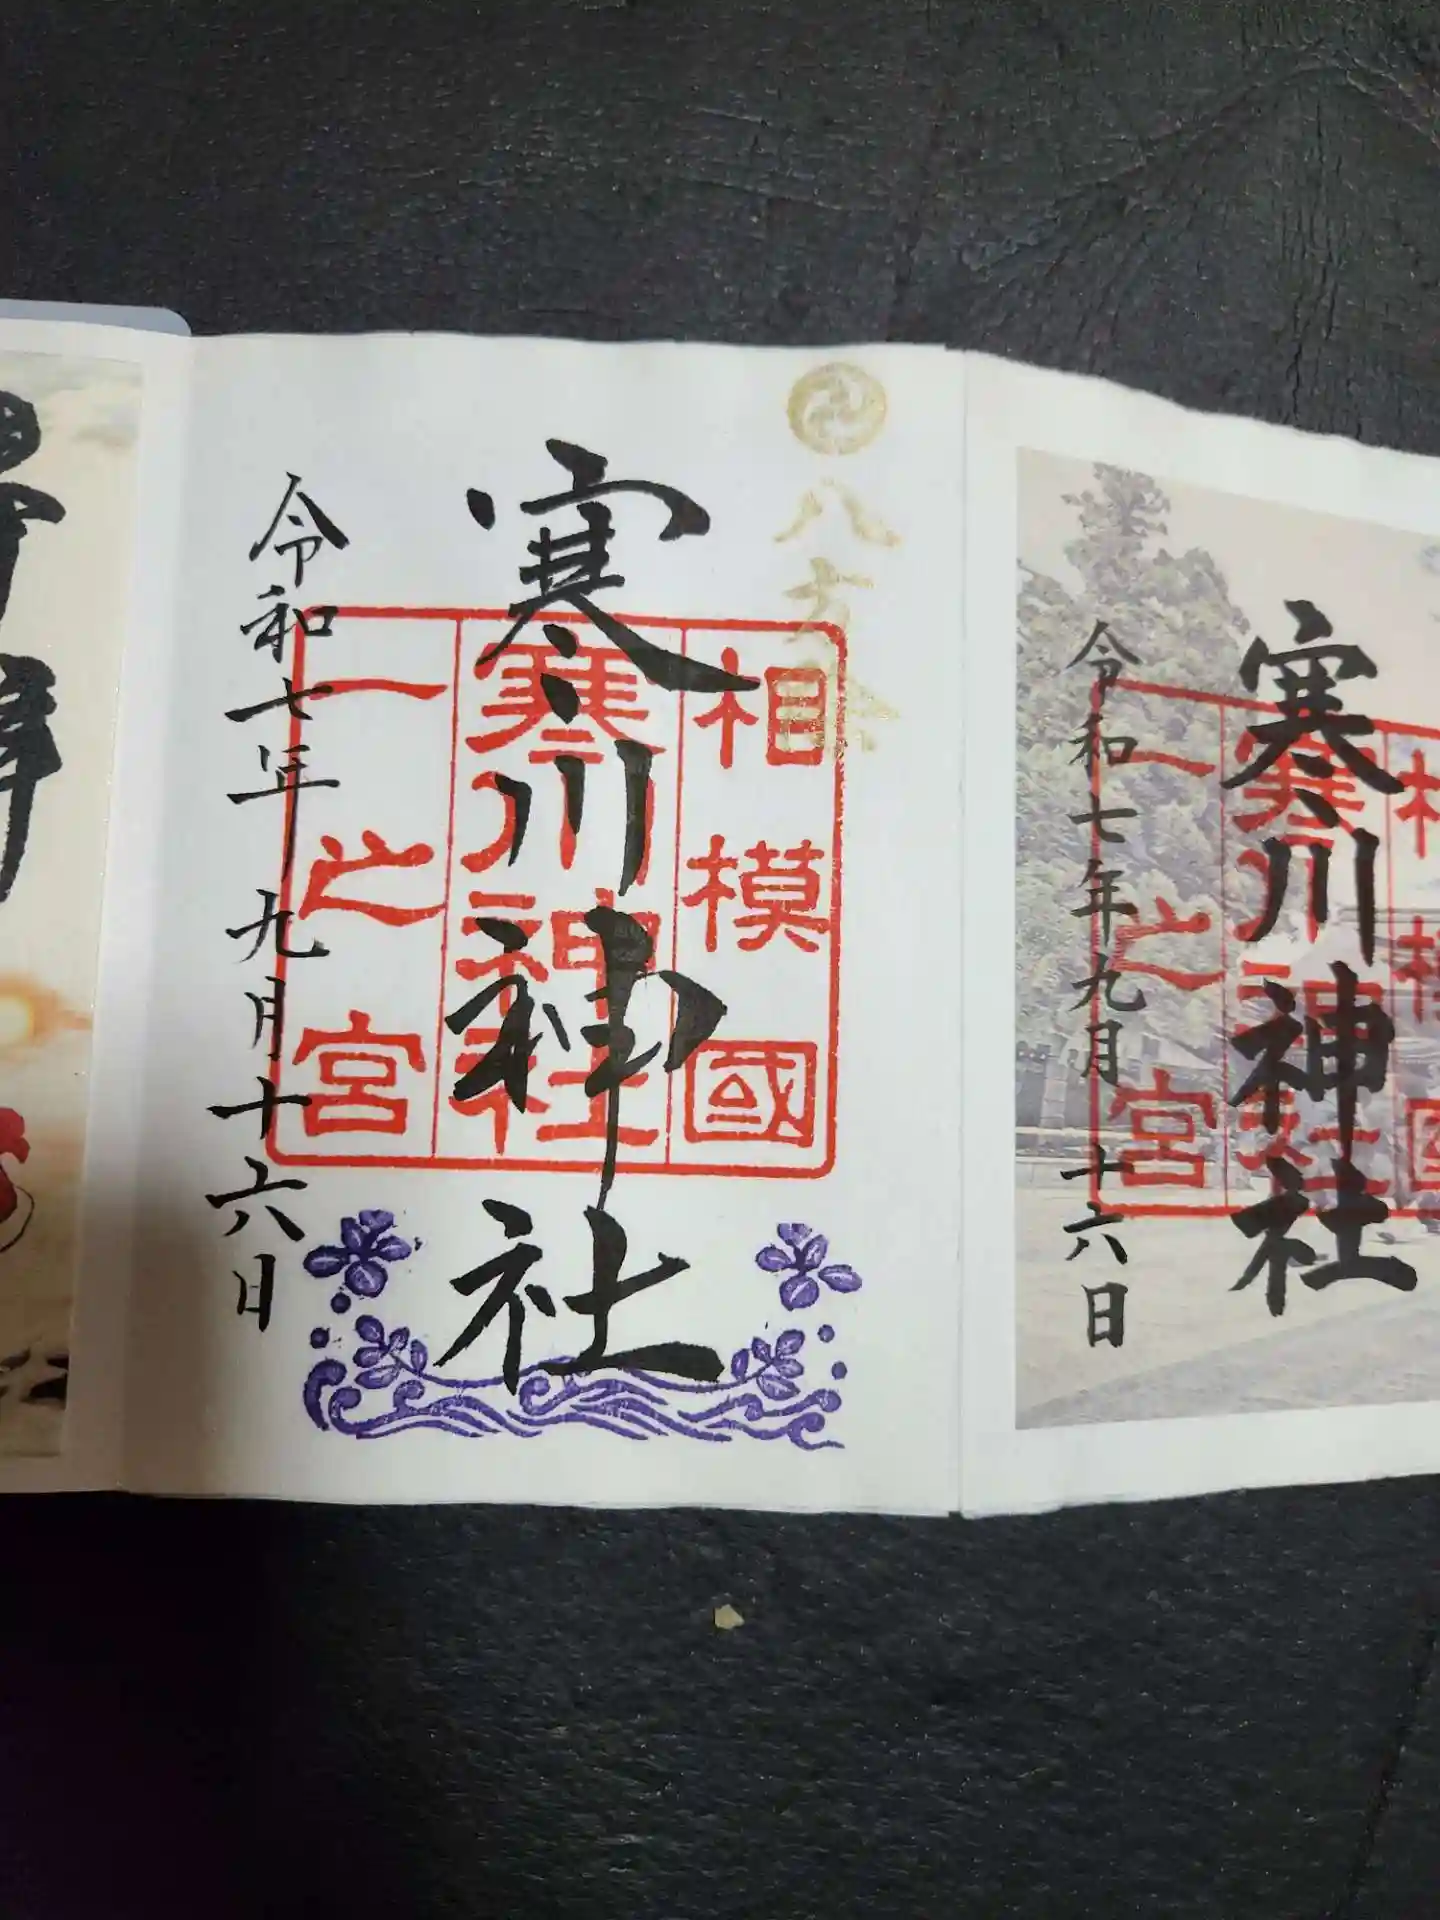 八方除
相模國
寒川神社
一之宮
寒川神社
令和七年九月十六日
寒川神社
寒川神社
一之宮
令和七年九月十六日